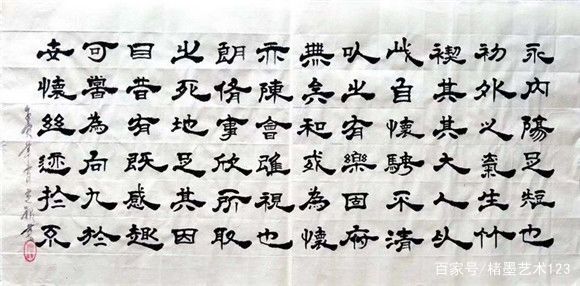 永内陽足短也
初外之氣生竹
禊其其大人以
此自懷騁不清
以之有樂固府
無矣和或為懷
亦陳會雖視也
朗脩事欣所取
之死地足其因
自昔有既感趣
可嘗為向九於
懷絲迹於系
百家号/楮墨艺术123